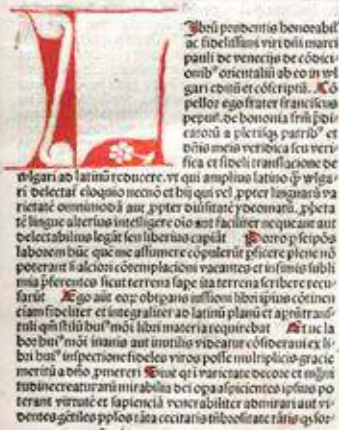 Librū prudentis honorabil'
ac fidelissimi viri dñi marci
pauli de venecijs de cōdici
onib⁹ orientaliū ab eo in vl
gari editū et cōscriptū. Cō
pellor ego frater franciscus
pepur. de bononia frm̄ p̄di
catorū a plerisq; patrib⁹ et
dñis meis veridica seu veri
fica et fideli translacione de
wlgari ad latinū reducere. vt qui amplius latino q̄ wlga
ri delectāt eloquio necnō et hij qui vel ꝓpter linguarū va
rietatē omnimodā aut ꝓpter diūsitatē ydeomatū. ꝓpeta
tē lingue alterius intelligere oīo aut faciliter nequeant aut
delectabilius legāt seu liberius capiāt Porro ꝑ seipōs
laborem hūc que me assumere cōpulerūt ꝑficere plene nō
poterant s̄ alciori cōtemplacioni vacantes et infimis subli
mia p̄ferentes sicut terrena sape ita terrena scribere recu
sarūt Ego aūt eoꝝ obtpans iussioni libri ipius cōtinen
ciam fideliter et integraliter ad latinū planū et aptū transf
tuli qm̄ stilū hui⁹mōi libri materia requirebat Et ne la
bor hui⁹mōi inanis aut inutilis videatur cōsideraui ex li
bri hui⁹ inspectione fideles viros posse multiplicis gracie
meritū a dño ꝓmereri Siue qꝛ varietate decore et mḡni
tudine creaturarū mirabilia dei opa aspicientes ipsius po
terant virtutē et sapienciā venerabiliter admirari aut vi
dentes gētiles pplos tāta cecitatis tūbositate tātis qꝫ sor-